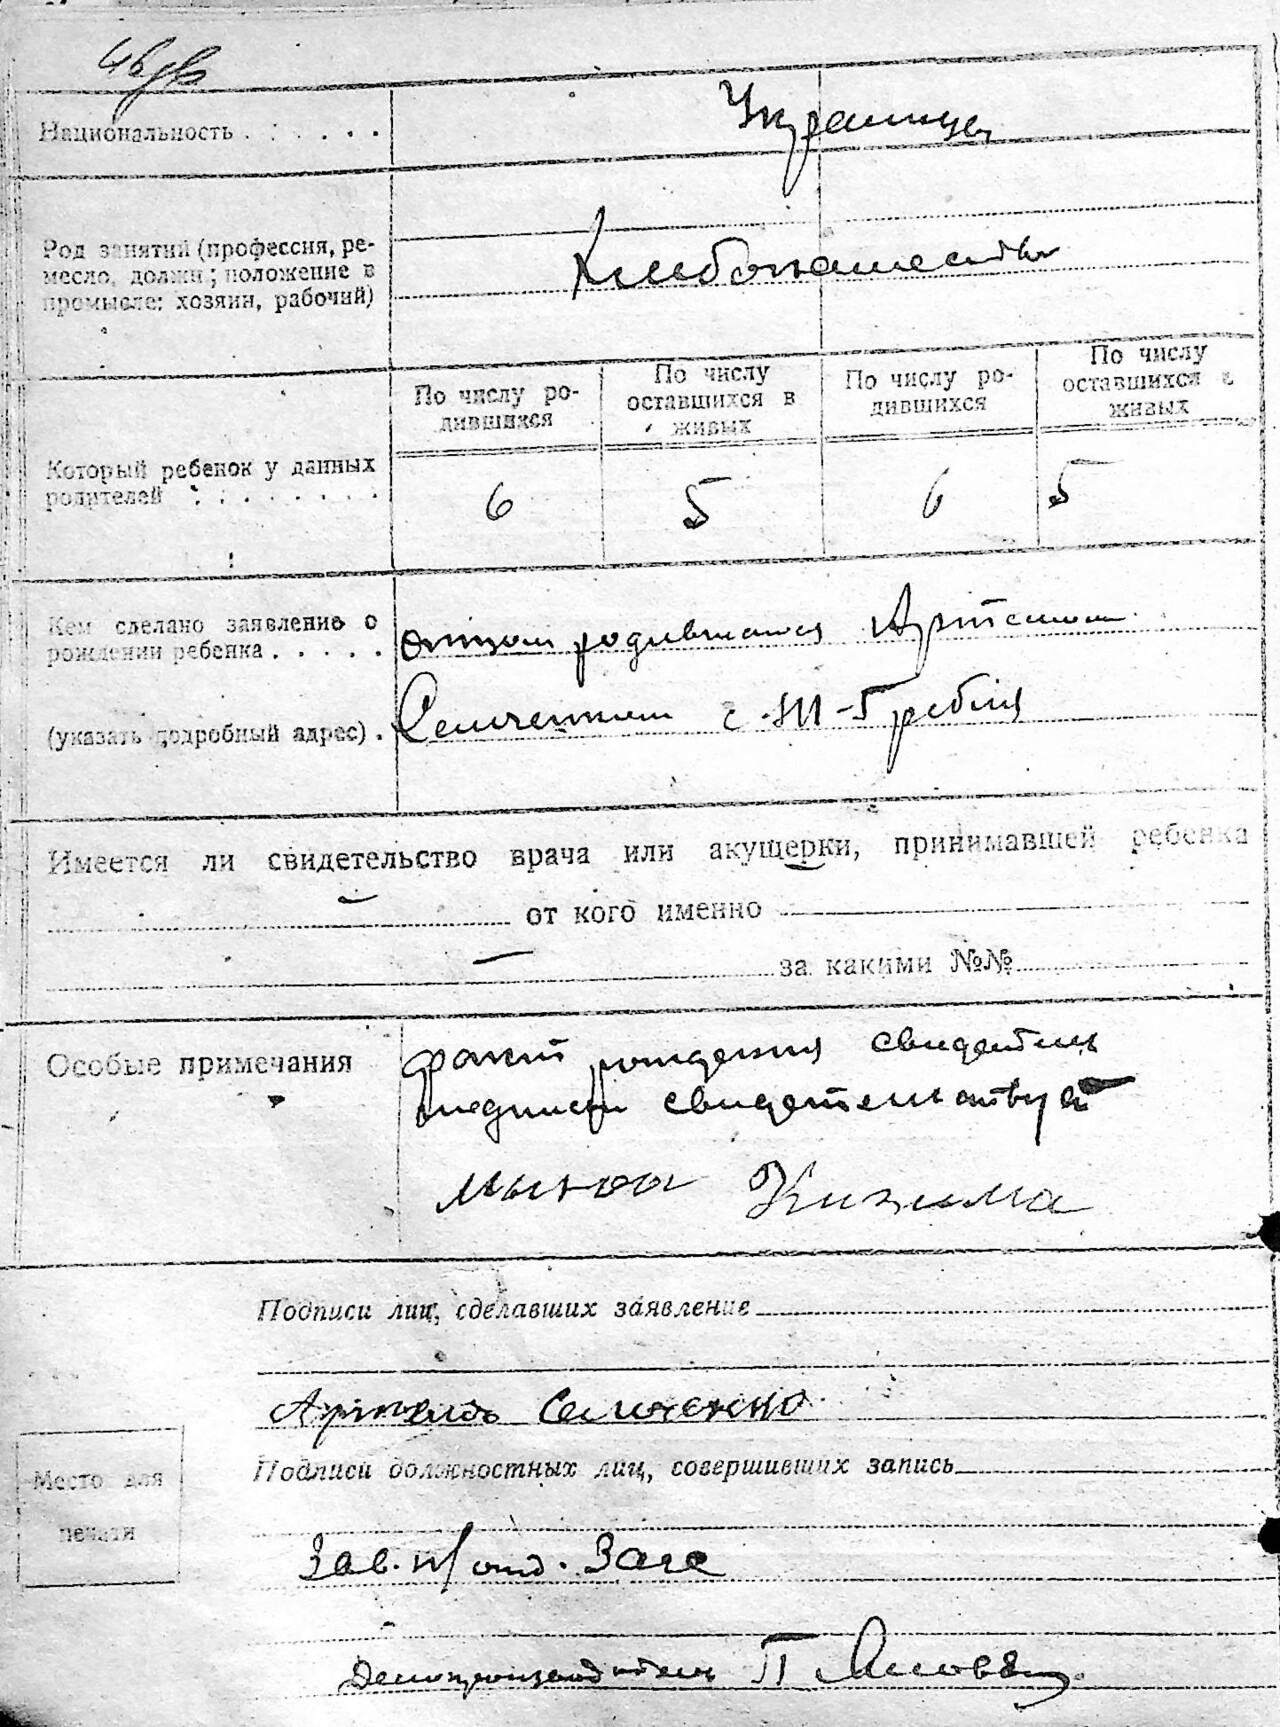 Национальность . . . . . .
Украинцы
Род занятий (профессия, ре-
месло, должн; положение в
промысле: хозяин, рабочий)
Хлебопашество
По числу ро-
дившихся
По числу
оставшихся в
живых
По числу ро-
дившихся
По числу
оставшихся в
живых
Который ребенок у данных
родителей . . . . . . . .
6 5 6 5
Кем сделано заявление о
рождении ребенка . . . . .
отцом родившагося Артемом
(указать подробный адрес) .
Селиченком с. Гребля
Имеется ли свидетельство врача или акушерки, принимавшей ребенка
от кого именно
за какими №№
Особые примечания
факт рождения свидетель
подписи свидетельствует
Кизима
Подписи лиц, сделавших заявление
Артемь Селиченко
Подписи должностных лиц, совершивших запись
Место для
печати
Зав. п/отд. Загс
Делопроизводитель П